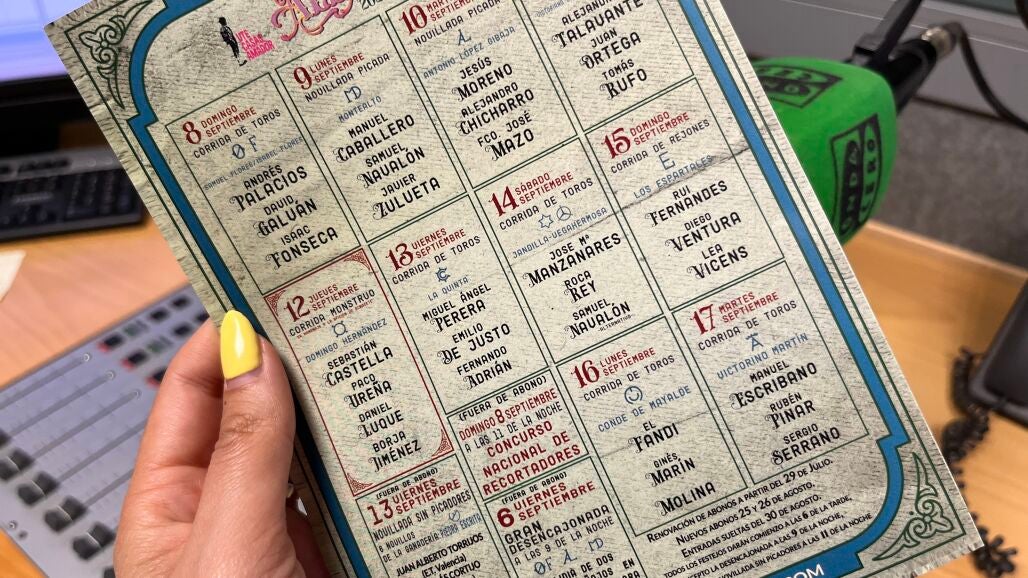 8 DOMINGO
SEPTIEMBRE
CORRIDA DE TOROS
SAMUEL FLORES/ISABEL FLORES
ANDRÉS
PALACIOS
DAVID
GALVÁN
ISAAC
FONSECA
9 LUNES
SEPTIEMBRE
NOVILLADA PICADA
MONTEALTO
MANUEL
CABALLERO
SAMUEL
NAVALÓN
JAVIER
ZULUETA
10 MARTES
NOVILLADA PICADA
ANTONIO LÓPEZ GIBAJA
JESÚS
MORENO
ALEJANDRO
CHICHARRO
FCO. JOSÉ
MAZO
ALEJANDRO
TALAVANTE
JUAN
ORTEGA
TOMÁS
RUFO
12 JUEVES
SEPTIEMBRE
CORRIDA MONSTRUO
DOMINGO HERNÁNDEZ
SEBASTIÁN
CASTELLA
PACO
UREÑA
DANIEL
LUQUE
BORJA
JIMÉNEZ
13 VIERNES
SEPTIEMBRE
CORRIDA DE TOROS
LA QUINTA
MIGUEL ÁNGEL
PERERA
EMILIO
DE JUSTO
FERNANDO
ADRIÁN
14 SÁBADO
SEPTIEMBRE
CORRIDA DE TOROS
JANDILLA-VEGAHERMOSA
JOSE Mª
MANZANARES
ROCA
REY
SAMUEL
NAVALÓN
ALTERNATIVA
15 DOMINGO
SEPTIEMBRE
CORRIDA DE REJONES
E
LOS ESPARTALES
RUI
FERNÁNDES
DIEGO
VENTURA
LEA
VICENS
(FUERA DE ABONO)
13 VIERNES
SEPTIEMBRE
NOVILLADA SIN PICADORES
6 NOVILLOS
DE LA GANADERÍA PIEDRA ESCRITA
JUAN ALBERTO TORRIJOS
(E.T. Valencia)
(FUERA DE ABONO)
DOMINGO 8 SEPTIEMBRE
A LAS 11 DE LA NOCHE
CONCURSO
NACIONAL DE
RECORTADORES
(FUERA DE ABONO)
6 VIERNES
SEPTIEMBRE
GRAN
DESENCAJONADA
A LAS 9 DE LA NOCHE
16 LUNES
SEPTIEMBRE
CORRIDA DE TOROS
CONDE DE MAYALDE
EL
FANDI
GINÉS
MARÍN
MOLINA
17 MARTES
SEPTIEMBRE
CORRIDA DE TOROS
A
VICTORINO MARTÍN
MANUEL
ESCRIBANO
RUBÉN
PINAR
SERGIO
SERRANO
RENOVACIÓN DE ABONOS A PARTIR DEL 29 DE JULIO.
NUEVOS ABONOS 25 Y 26 DE AGOSTO.
ENTRADAS SUELTAS DEL 30 DE AGOSTO.
TODOS LOS FESTEJOS DARÁN COMIENZO A LAS 6 DE LA TARDE,
EXCEPTO LA DESENCAJONADA A LAS 9 DE LA NOCHE,
NOVILLADA SIN PICADORES A LAS 11 DE LA NOCHE
.COM
ONDA
CERO